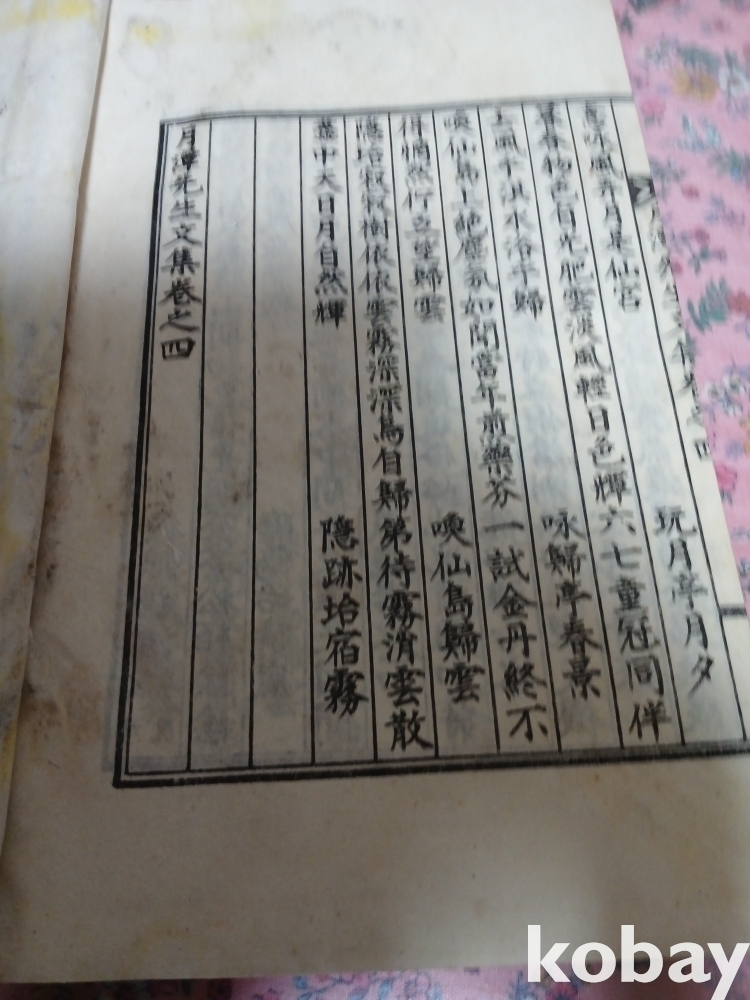 吟風弄月是仙宮 玩月亭月夕
春物色自光肥雲淡風輕日色輝六七童冠同伴
上風乎淇水浴乎歸 咏歸亭春景
喚仙島上絶塵氛如聞當年煎藥芬一試金丹終不
得惆然行立望歸雲 喚仙島歸雲
隱坮寂寂樹依依雲霧深深鳥自歸第待霧消雲散
盡中天日月自然輝 隱跡坮宿霧
月潭先生文集卷之四
kobay